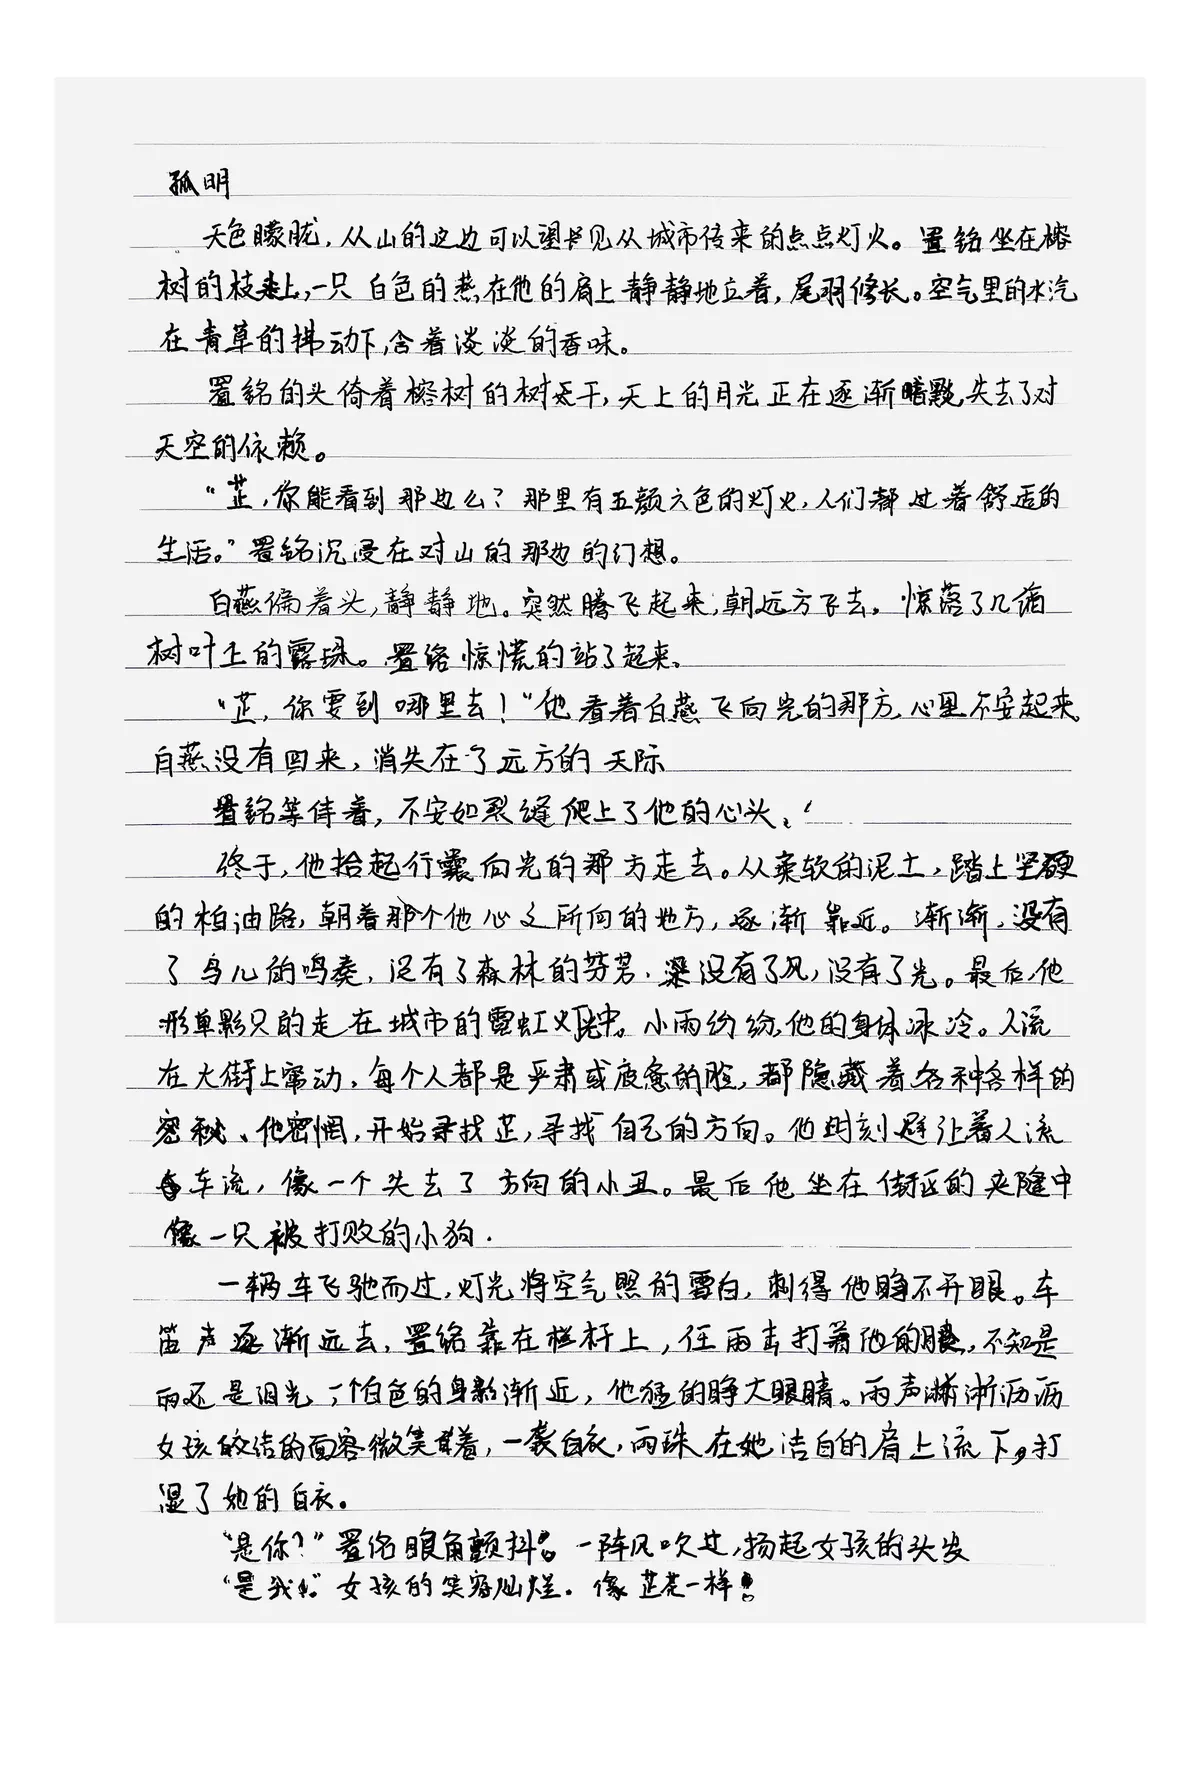 孤明
天色朦胧，从山的这边可以望见从城市传来的点点灯火。置铭坐在榕
树的枝上，一只白色的燕在他的肩上静静地立着，尾羽修长。空气里的水汽
在青草的拂动下，含着淡淡的香味。
置铭的头倚着榕树的树干，天上的月光正在逐渐暗黢，失去了对
天空的依赖。
“芷，你能看到那边么？那里有五颜六色的灯火，人们都过着舒适的
生活。”置铭沉浸在对山的那边的幻想。
白燕偏着头，静静地。突然腾飞起来，朝远方飞去。惊落了几滴
树叶上的露珠。置铭惊慌的站了起来。
“芷，你要到哪里去！”他看着白燕飞向光的那方，心里不安起来。
白燕没有回来，消失在了远方的天际
置铭等待着，不安如裂缝爬上了他的心头。
终于，他拾起行囊向光的那方走去。从柔软的泥土，踏上坚硬
的柏油路，朝着那个他心之所向的地方，逐渐靠近。渐渐，没有
了鸟儿的鸣奏，没有了森林的芬芳.没有了风，没有了光。最后，他
形单影只的走在城市的霓虹灯中。小雨纷纷，他的身体冰冷。人流
在大街上窜动，每个人都是严肃或疲惫的脸，都隐藏着各种各样的
密秘、他密惘，开始寻找芷，寻找自己的方向。他时刻避让着人流
车流，像一个失去了方向的小丑。最后他坐在街区的夹隆中
像一只被打败的小狗.
一辆车飞驰而过，灯光将空气照的雪白，刺得他睁不开眼。车
笛声逐渐远去，置铭靠在栏杆上，任雨击打着他的眼，不知是
雨还是泪光，一个白色的身影渐近，他猛的睁大眼睛。雨声淅淅沥沥
女孩皎洁的面容微笑着，一袭白衣，雨珠在她洁白的肩上流下，打
湿了她的白衣。
“是你？”置铭眼角颤抖。一阵风吹过，扬起女孩的头发
“是我！”女孩的笑容灿烂.像芷花一样！